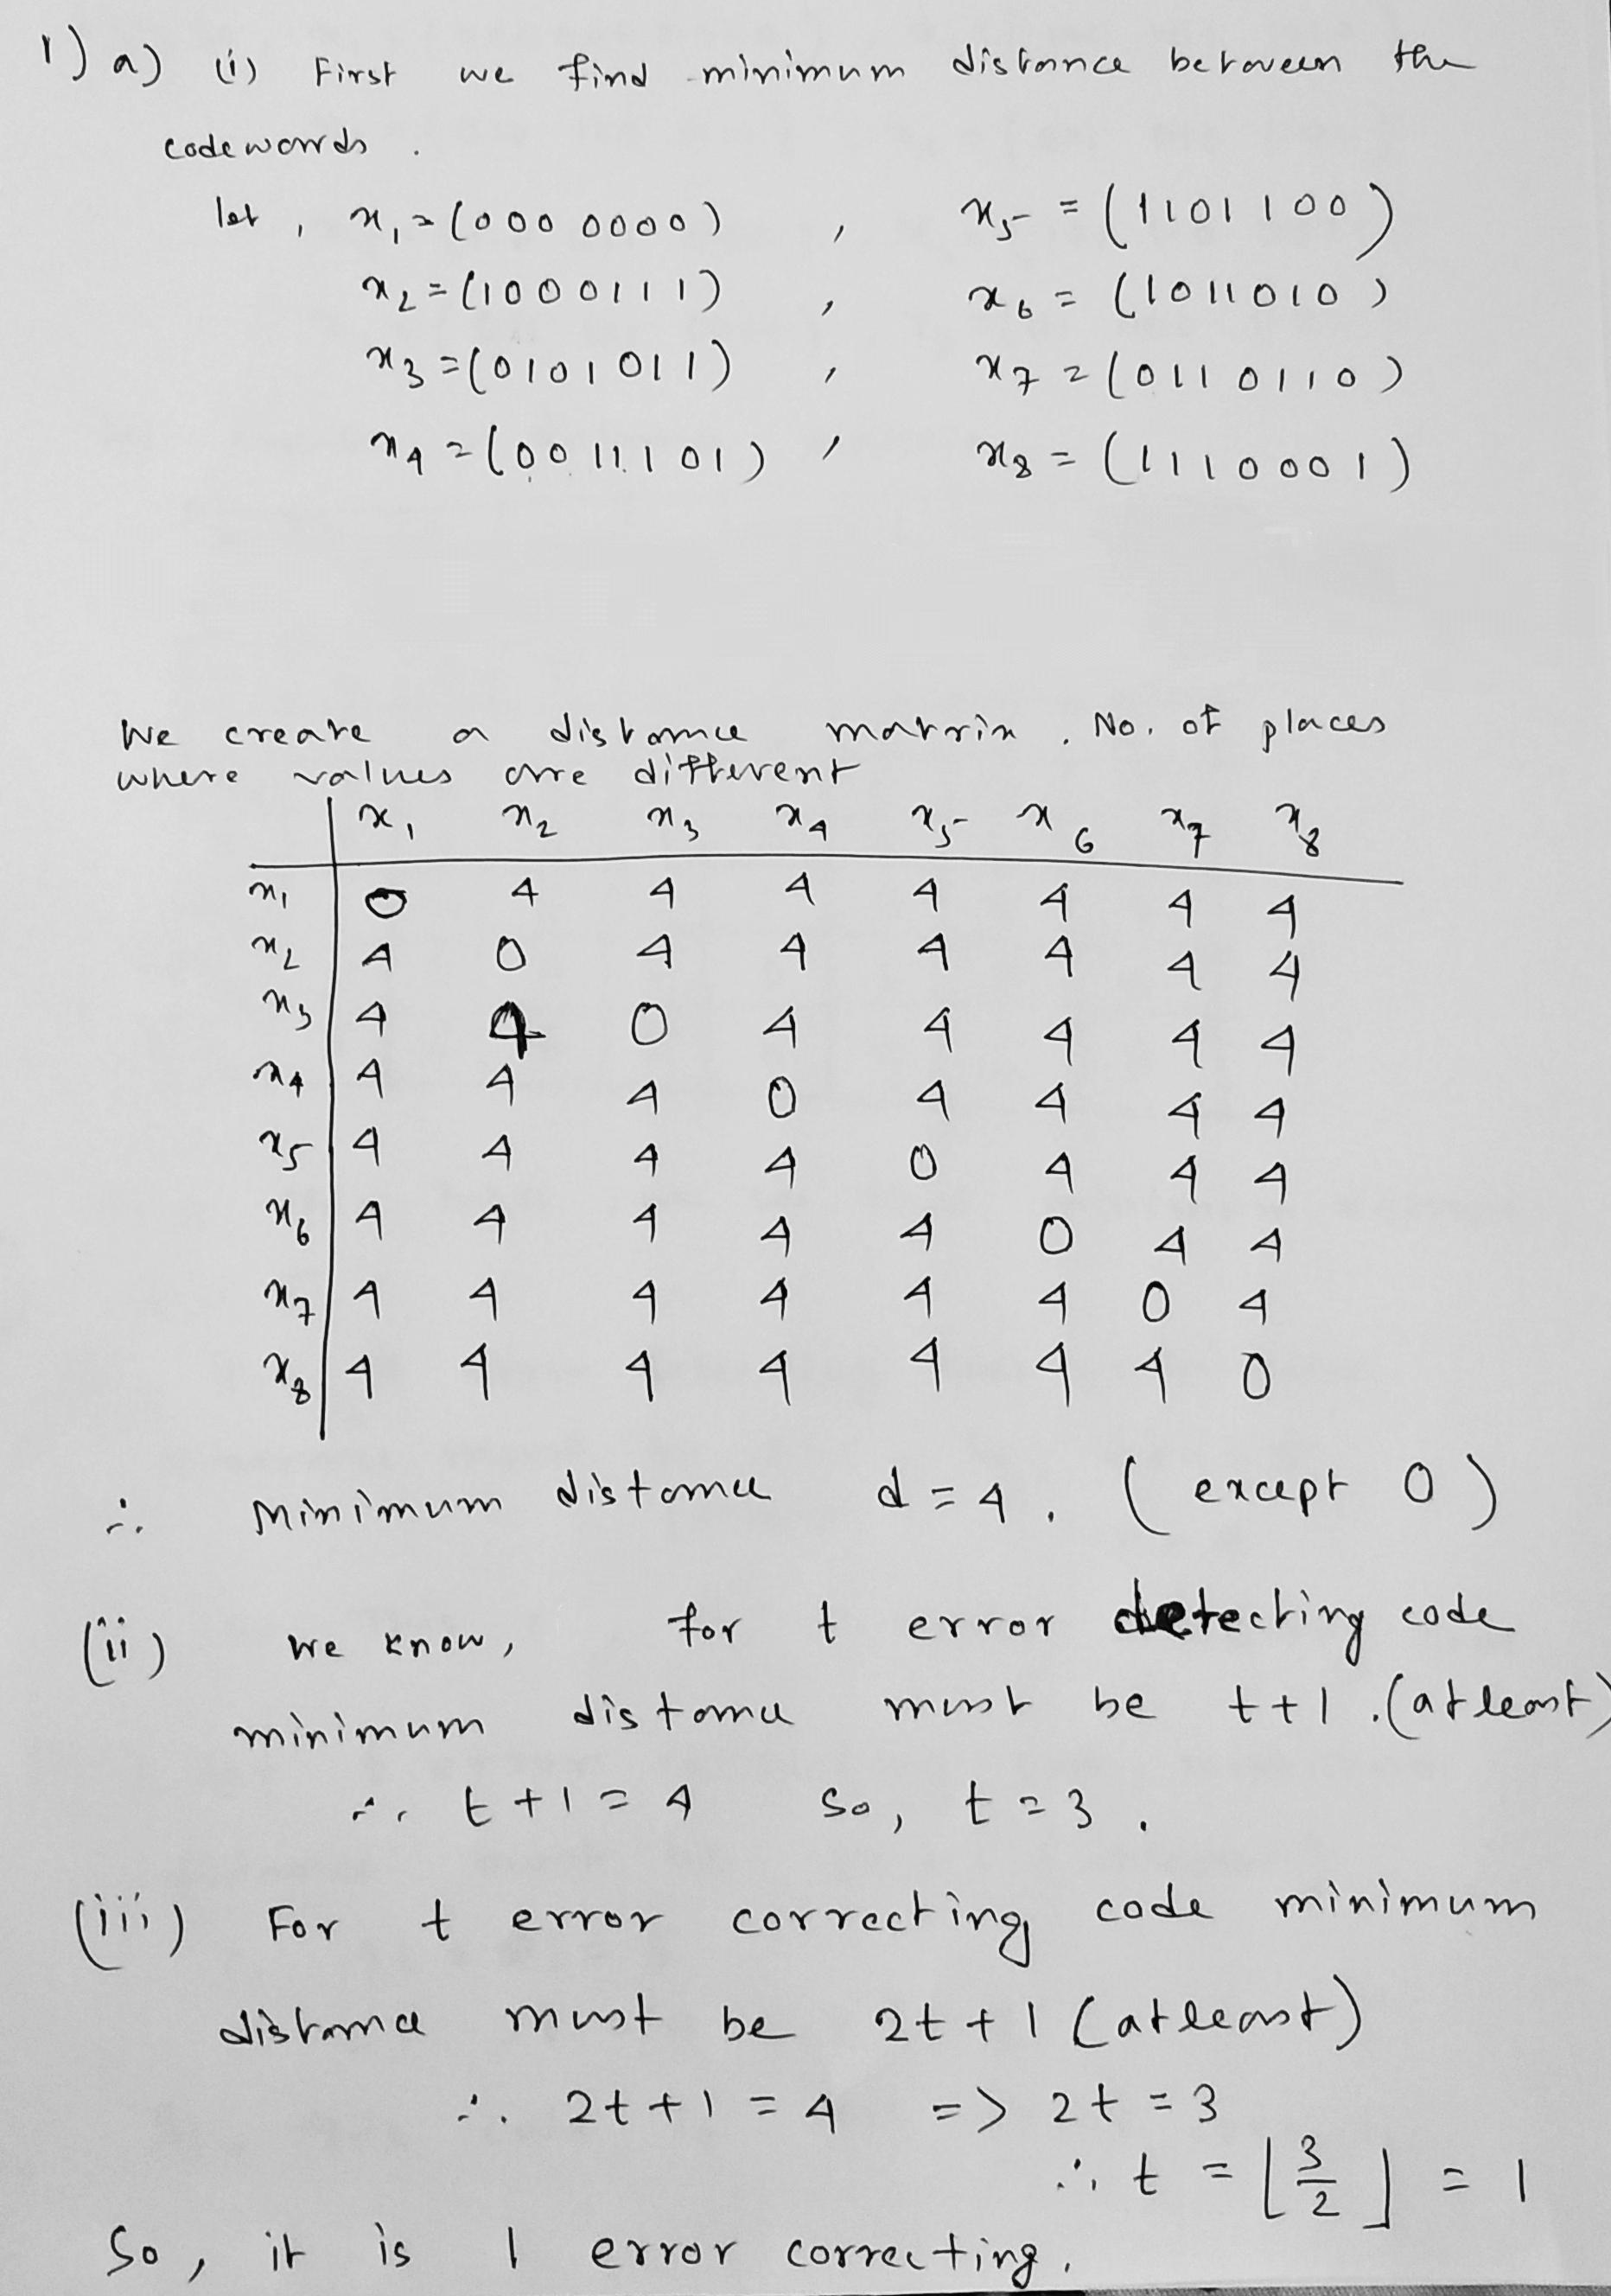 1) a) (i) First we find minimum distance between the
codewords .
let , x₁ = (000 0000) , x₅ = (1101100)
x₂ = (1000111) , x₆ = (1011010)
x₃ = (0101011) , x₇ = (0110110)
x₄ = (0011101) , x₈ = (1110001)
We create a distance matrix . No. of places
where values are different
x₁ x₂ x₃ x₄ x₅ x₆ x₇ x₈
x₁ 0 4 4 4 4 4 4 4
x₂ 4 0 4 4 4 4 4 4
x₃ 4 4 0 4 4 4 4 4
x₄ 4 4 4 0 4 4 4 4
x₅ 4 4 4 4 0 4 4 4
x₆ 4 4 4 4 4 0 4 4
x₇ 4 4 4 4 4 4 0 4
x₈ 4 4 4 4 4 4 4 0
∴ Minimum distance d = 4 . ( except 0 )
(ii) We know, for t error detecting code
minimum distance must be t+1 . (atleast)
∴ t+1 = 4 So, t = 3 .
(iii) For t error correcting code minimum
distance must be 2t+1 (atleast)
∴ 2t+1 = 4 => 2t = 3
∴ t = ⌊3/2⌋ = 1
So, it is 1 error correcting.